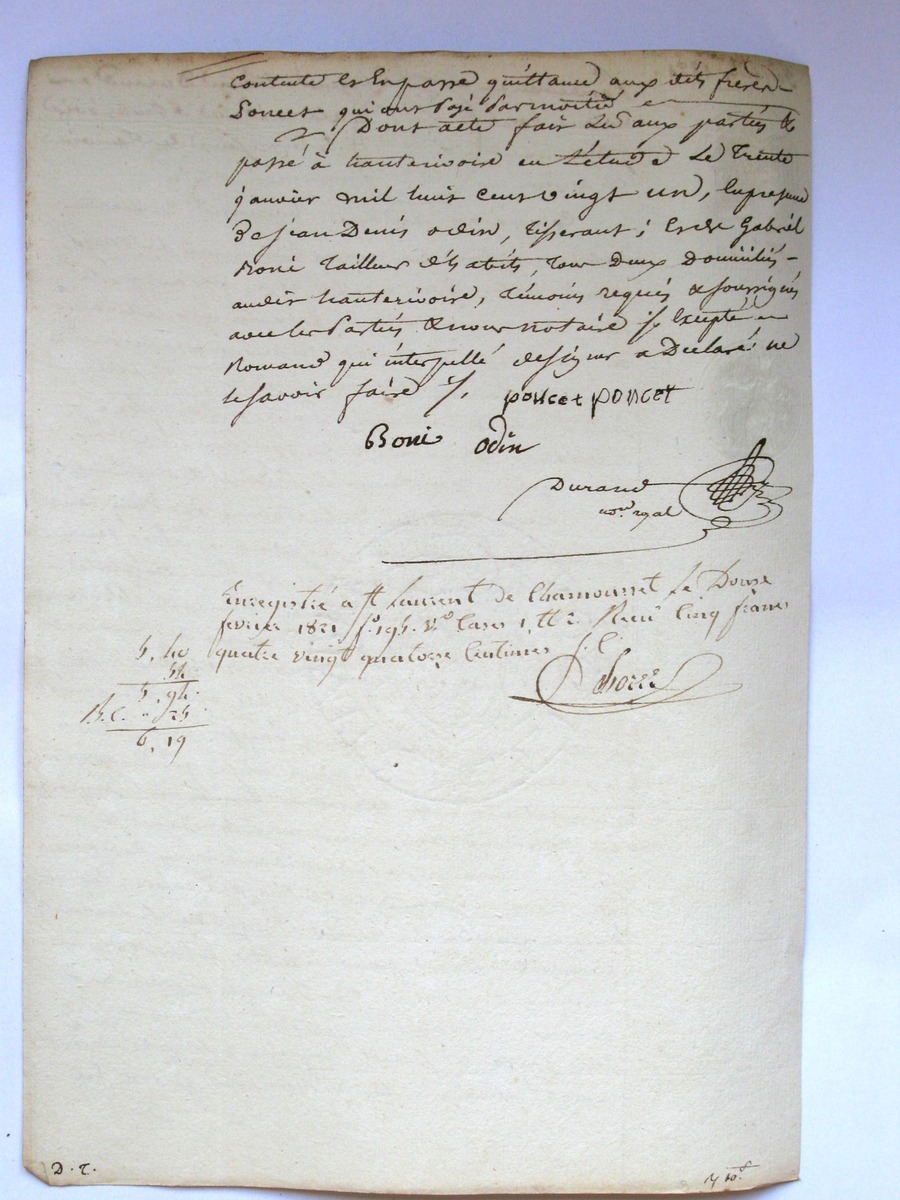 Contente et En passe quittance aux dits freres
Poncet qui ont Payé Par moitié
Dont acte fait Lu aux parties &
passé à hauterivoire en L'étude Le Trente
janvier mil huit cent vingt un, En presence
de jean Denis odin, Tisserant; Et de Gabriël
Boni Tailleur d'habits, Tous Deux Domiciliés
audit hauterivoire, Témoins requis & soussignés
avec les Parties & nous notaire ./. Excepté
Romand qui interpellé de signer a Declaré ne
le savoir faire ./. poncet poncet
Boni odin
Durand
no.re royal
Enregistré a St Laurent de Chamousset Le Douze
fevrier 1821 f.o 195. V.o Cases 1, et 2. Recu Cinq francs
quatre vingt quatorze Centimes
5, 40
54
5, 94
25
6, 19
D. T.